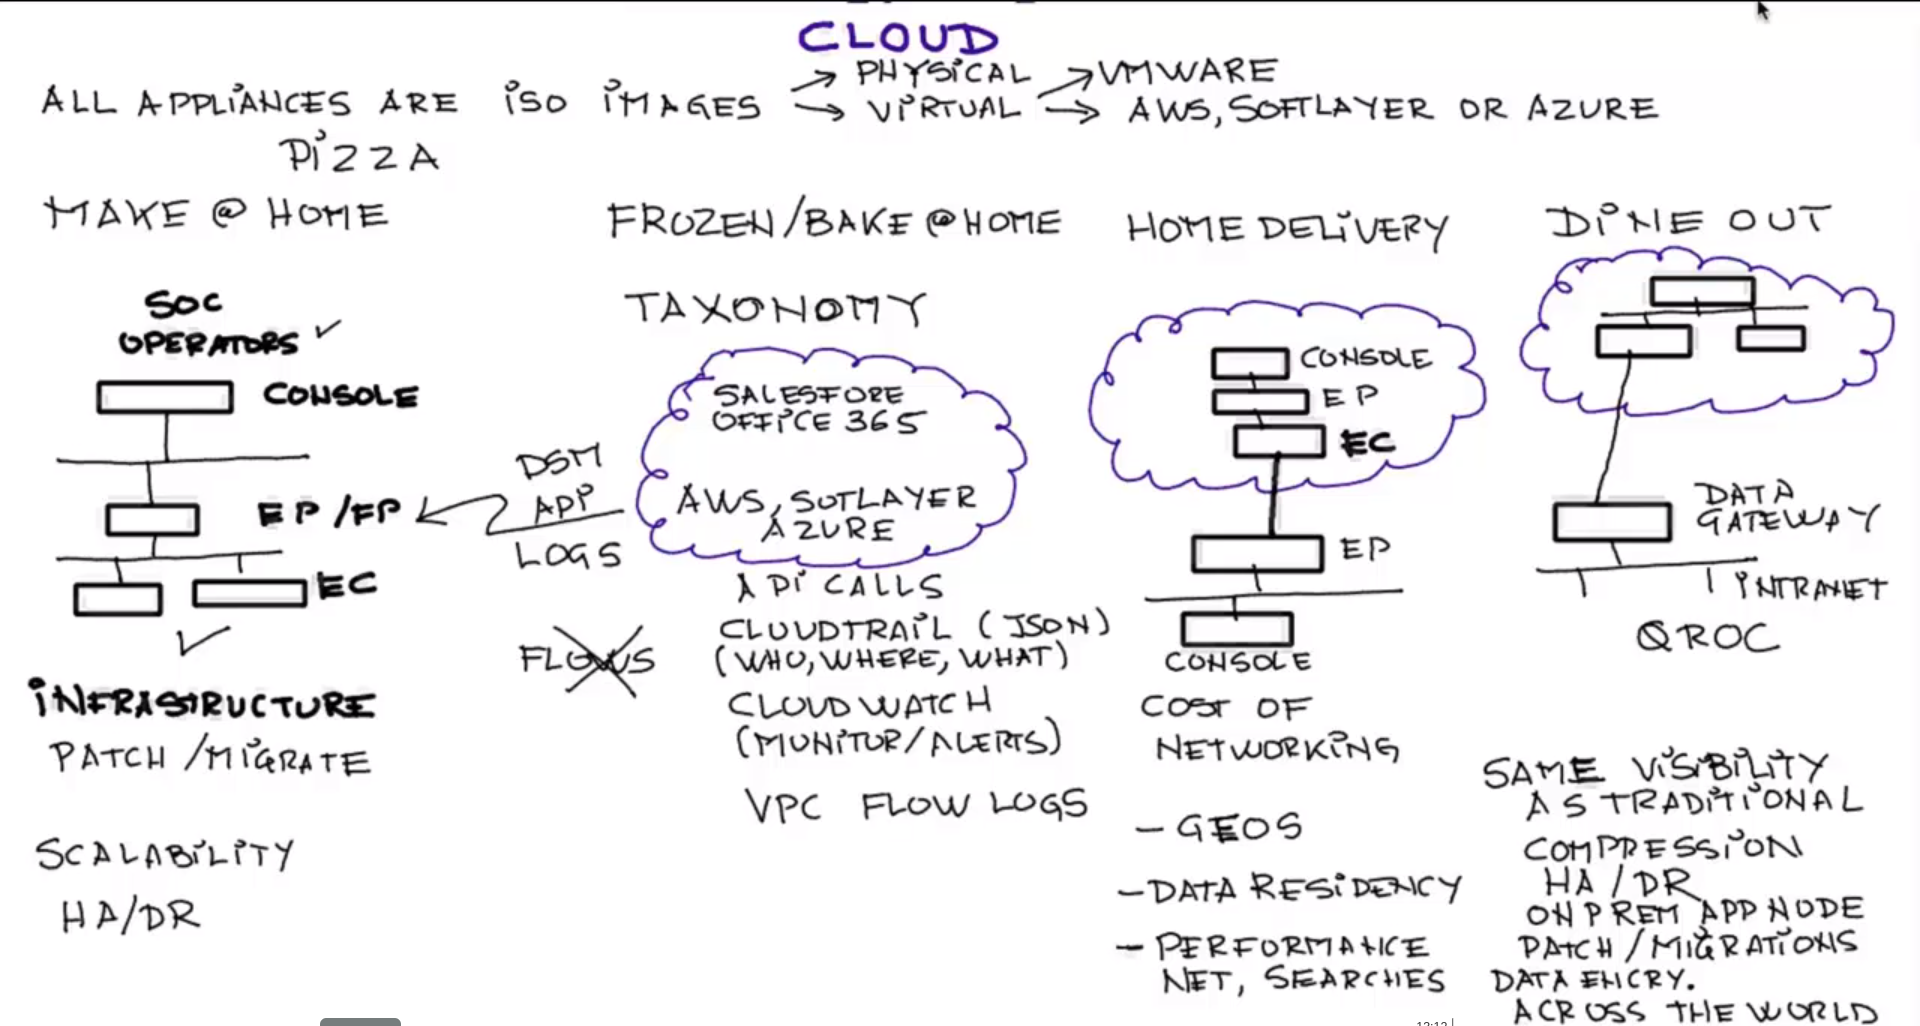 CLOUD
PHYSICAL
VMWARE
ALL APPLIANCES ARE ISO IMAGES
VIRTUAL
AWS, SOFTLAYER OR AZURE
PIZZA
MAKE @ HOME
FROZEN/BAKE @ HOME
HOME DELIVERY
DINE OUT
SOC
OPERATORS
CONSOLE
EP/FP
EC
INFRASTRUCTURE
PATCH/MIGRATE
SCALABILITY
HA/DR
TAXONOMY
SALESFORE
OFFICE 365
AWS, SOTLAYER
AZURE
DSM
APP
LOGS
FLOWS
API CALLS
CLOUDTRAIL (JSON)
(WHO, WHERE, WHAT)
CLOUD WATCH
(MUNITUR/ALERTS)
VPC FLOW LOGS
CONSOLE
EP
EC
EP
CONSOLE
COST OF
NETWORKING
- GEOS
- DATA RESIDENCY
- PERFORMANCE
NET, SEARCHES
DATA
GATEWAY
INTRANET
QROC
SAME VISIBILITY
AS TRADITIONAL
COMPRESSION
HA/DR
ON PREM APP NODE
PATCH/MIGRATIONS
DATA ENCRY.
ACROSS THE WORLD